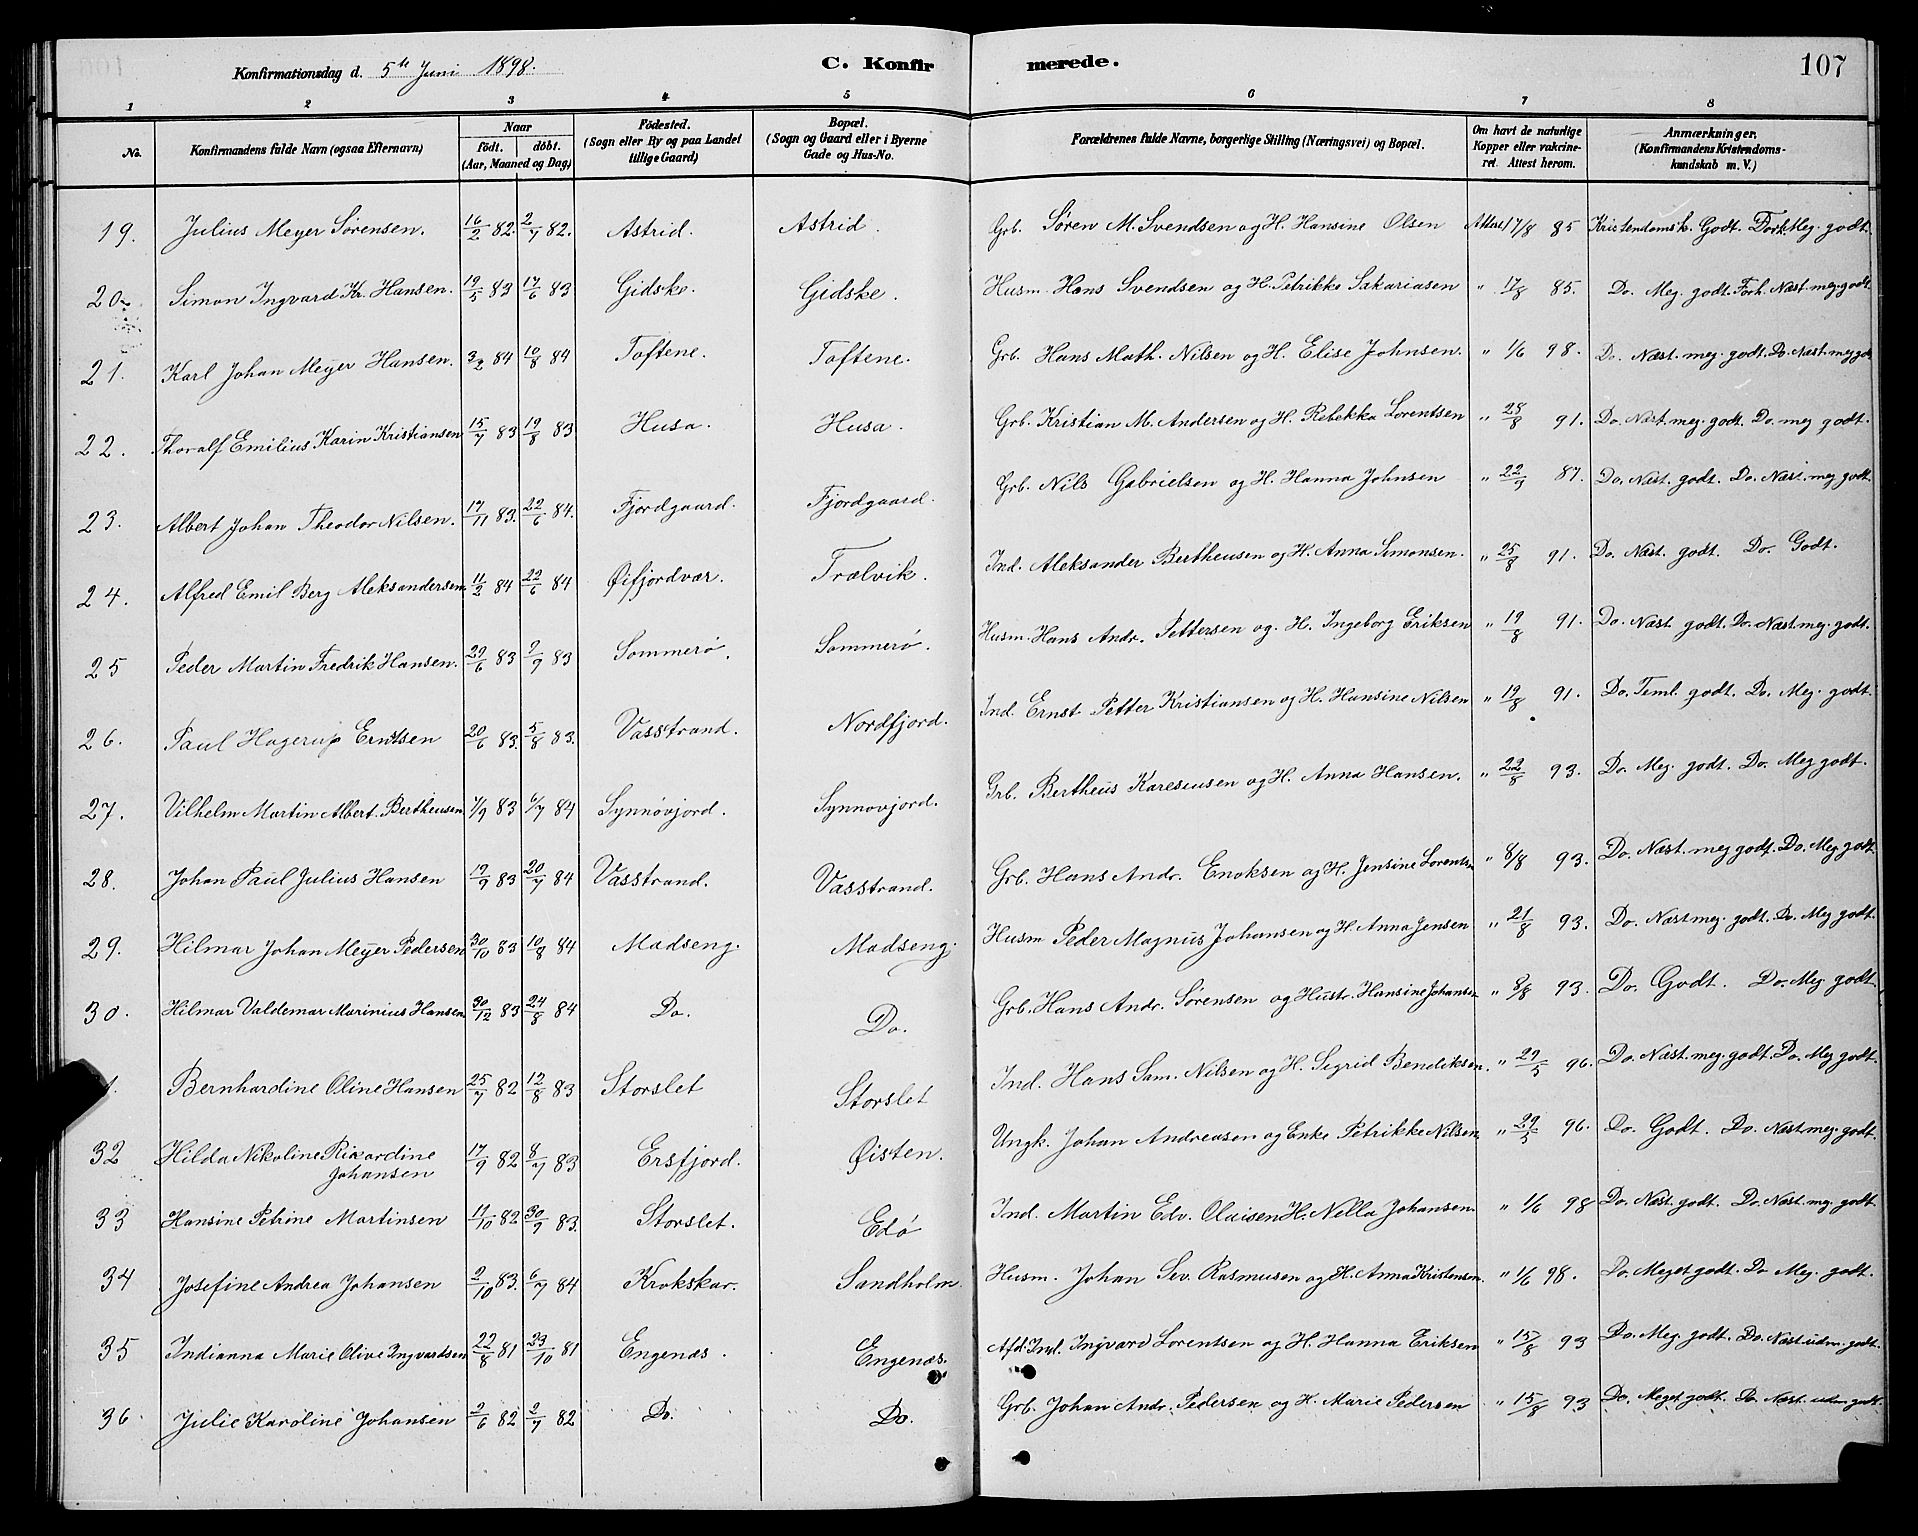 Konfirmationsdag d. 5te Juni 1898. C. Konfir merede. 107
1 2 3 4 5 6 7 8
No. Konfirmandens fulde Navn (ogsaa Efternavn) Naar födt. döbt. (Aar, Maaned og Dag) Födested. (Sogn eller By og paa Landet tillige Gaard) Bopæl. (Sogn og Gaard eller i Byerne Gade og Hus-No. Forældrenes fulde Navne, borgerlige Stilling (Næringsvei) og Bopæl. Om havt de naturlige Kopper eller vakcineret. Attest herom. Anmærkninger. (Konfirmandens Kristendomskundskab m. V.)
19. Julius Meyer Sørensen. 16/2 82. 2/7 82. Astrid. Astrid. Grb. Søren M. Svendsen og H. Hansine Olsen Attest 17/8 85 Kristendomsk. Godt. Forh. Meg. godt.
20. Simon Ingvard Kr. Hansen. 19/5 83 17/6 83 Gidske. Gidske. Husm. Hans Svendsen og H. Petrikke Sakariasen " 17/8 85. Do. Meg. godt. Forh. Næst. meg. godt.
21. Karl Johan Meyer Hansen. 3/2 84 10/8 84 Toftene. Toftene. Grb. Hans Math. Nilsen og H. Elise Johnsen. " 1/6 98. Do. Næst. meg. godt. Do. Næst. meg god
22. Thoralf Emilius Karin Kristiansen 15/7 83 19/8 83 Husa. Husa. Grb. Kristian M. Andersen og H. Rebekka Lorentsen " 28/8 91. Do. Næst. meg. godt. Do. meg godt.
23. Albert Johan Theodor Nilsen. 17/11 83. 22/6 84. Fjordgaard. Fjordgaard. Grb. Nils Gabrielsen og H. Hanna Johnsen " 22/9 87. Do. Næst. godt. Do. Næst. meg godt.
24. Alfred Emil Berg Aleksandersen. 11/2 84 22/6 84 Øifjordvær. Trælvik. Ind. Aleksander Bertheusen og H. Anna Simonsen. " 25/8 91. Do. Næst. godt. Do. Godt.
25 Peder Martin Fredrik Hansen. 29/6 83 9/9 83 Sommerø. Sommerø. Husm. Hans Andr. Pettersen og H. Ingeborg Eriksen " 19/8 91. Do. Næst. godt. Do. Næst. meg. godt.
26. Paul Hagerup Erntsen 20/6 83. 5/8 83. Vasstrand. Nordfjord. Ind. Ernst Petter Kristiansen og H. Hansine Nilsen " 19/8 91. Do. Teml. godt. Do. Meg. godt.
27. Vilhelm Martin Albert Bertheusen 7/9 83 6/7 84 Synnøvjord. Synnovjord. Grb. Bertheus Kareseusen og H. Anna Hansen. " 22/8 93. Do. Meg. godt. Do. Meg godt.
28. Johan Paul Julius Hansen 19/9 83 20/7 84 Vasstrand. Vasstrand. Grb. Hans Andr. Enoksen og H. Jensine Lorents " 8/8 93. Do. Næst. meg godt. Do. Meg godt.
29. Hilmar Johan Meyer Pedersen 30/10 83 10/8 84 Madseng. Madseng. Husm Peder Magnus Johansen og H. Anna Jensen " 21/8 93. Do. Næst meg. godt. Do. Meg godt.
30. Hilmar Valdemar Marinius Hansen 30/12 83 24/8 84 Do. Do. Grb. Hans Andr. Sørensen og Hustr. Hansine Johansen " 8/8 93. Do. Godt. Do. Meg godt
1. Bernhardine Oline Hansen 25/7 82 12/8 83 Storslet Storslet Ind. Hans Sam. Nilsen og H. Sigrid Bendiksen. " 29/5 96. Do. Næst. meg. godt. Do. Meg godt.
32 Hilda Nikoline Rikardine Johansen 17/9 82 8/7 83 Ersfjord. Øisten. Ungk. Johan Andreasen og Enke Petrikke Nilsen. " 29/5 96. Do. Godt. Do. Næst meg. godt.
33 Hansine Petrine Martinsen 11/10 82 30/9 83. Storslet. Edø Ind. Martin Edv. Olaisen H. Nella Johansen. " 1/6 98 Do. Næst. godt. Do. Næst. meg. godt.
34 Josefine Andrea Johansen 2/10 83. 6/7 84 Krokskar. Sandholm. Husm. Johan Sev. Rasmusen og H. Anna Kristensen. " 1/6 98. Do. Meget godt. Do Meg. godt.
35 Indianna Marie Olive Ingvardsen 22/8 81 23/10 81 Engenæs. Engenæs. Afd. Ind. Ingvard Lorentsen og H. Hanna Eriksen " 15/8 93 Do. Meg. godt. Do. Næst udm. godt.
36. Julie Karoline Johansen 2/6 82 2/7 82 Do. Do. Grb. Johan Andr. Pedersen og H. Marie Pedersen " 15/8 93 Do. Meget godt. Do. Næst. udm. godt.